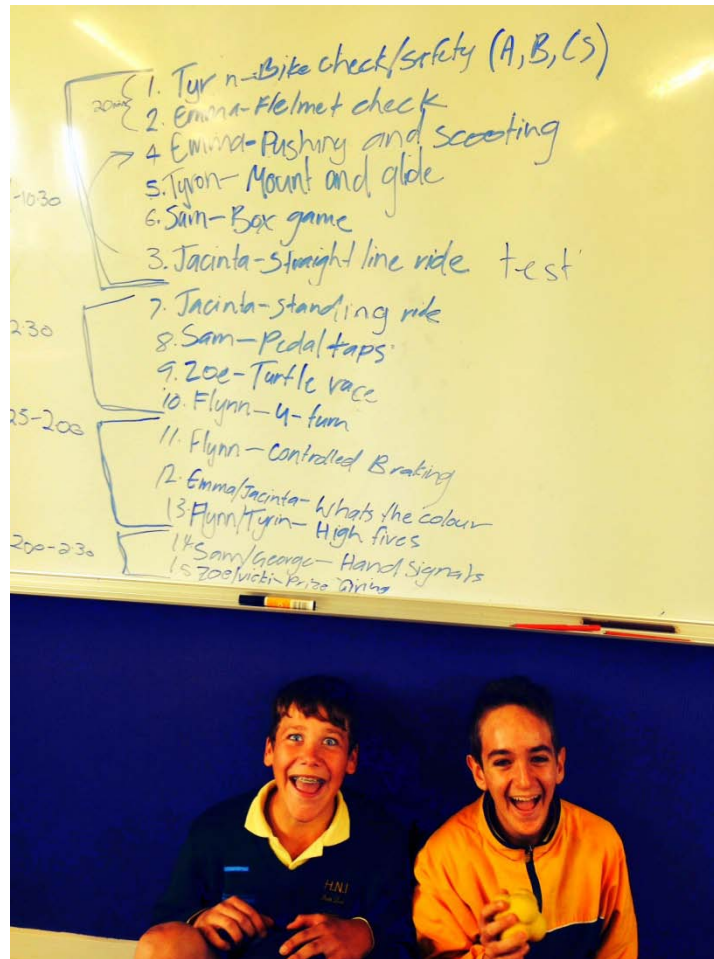 20m
1. Tyr n-Bike check/safety (A, B, CS)
2. Emma-Helmet check
4 Emma-Pushing and scooting
5. Tyron- Mount and glide
-10:30
6. Sam-Box game
3. Jacinta-straight line ride test
7. Jacinta-standing ride
2:30
8. Sam-Pedal taps
9. Zoe-Turtle race
10. Flynn-U-turn
25-200
11. Flynn-controlled Braking
12. Emma/Jacinta-Whats the colour
13 Flynn/Tyrin-High fives
200-2:30
14 Sam/George-Hand Signals
15 Zoe/Vicki-Prize Giving
H.N.I